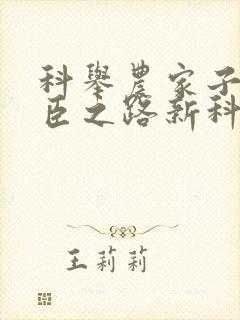 科舉農家子
臣之路新科
王莉莉